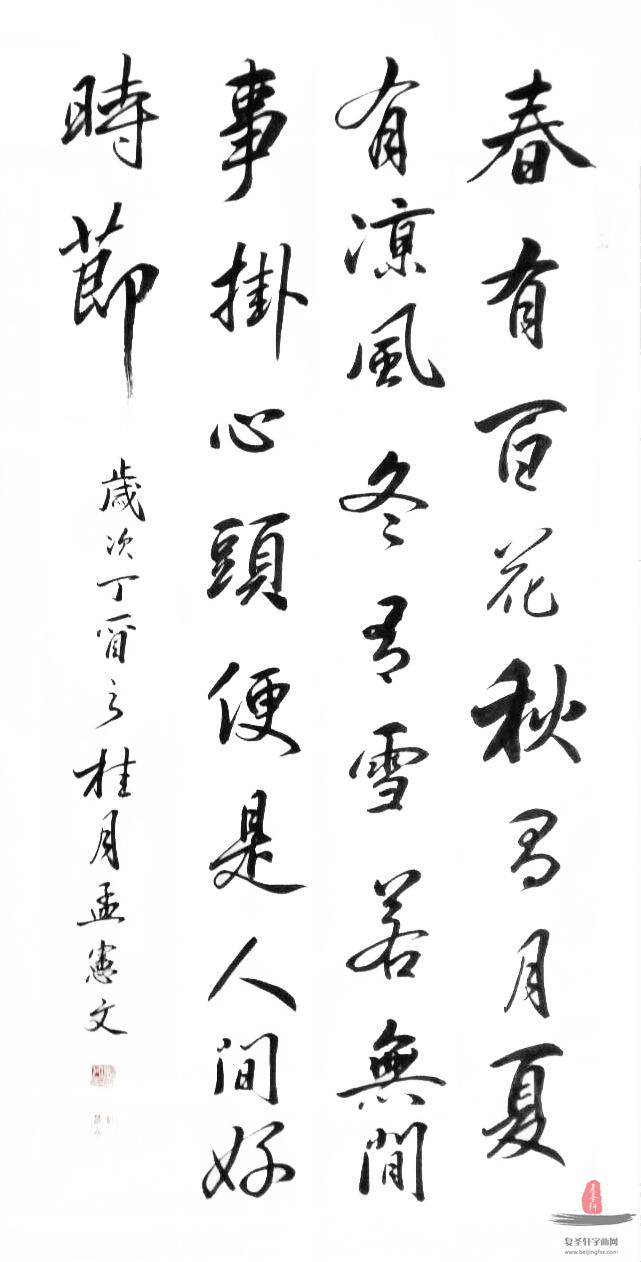 春有百花秋有月夏
有凉風冬有雪若無閒
事掛心頭便是人間好
時節
歲次丁酉之桂月孟憲文
复圣轩字画网
www.beijingfsx.com